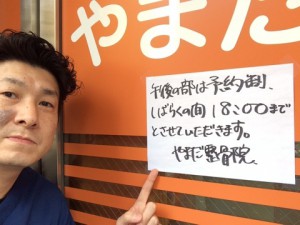 やまだ
午後の部は予約制、
しばらくの間 18:00まで
とさせていただきます。
やまだ整骨院、